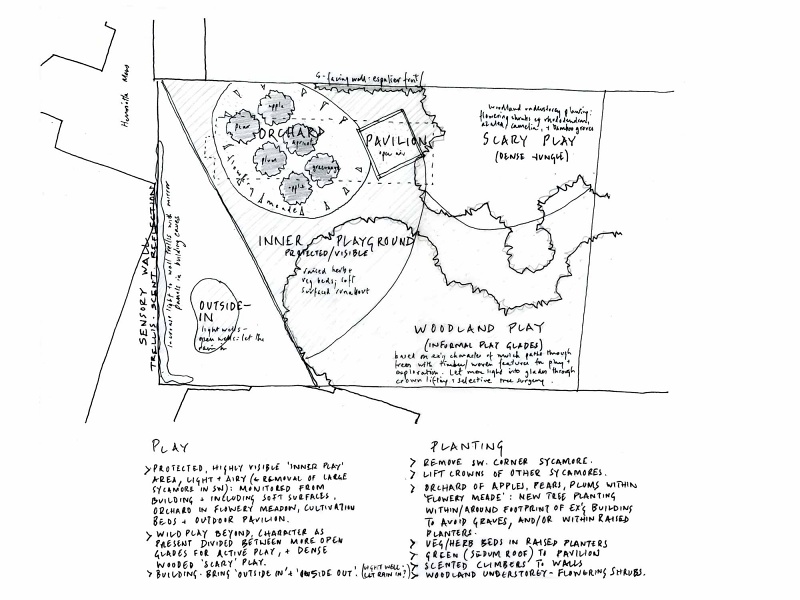 S-facing wall: espalier fruit
Woodland understorey planting:
flowering shrubs eg rhododendron,
azalea, camelia, + bamboo groves
SCARY PLAY
(DENSE JUNGLE)
apple
pear
ORCHARD
apricot
plum
greengage
apple
flowering meade
PAVILION
open air
INNER PLAYGROUND
PROTECTED/VISIBLE
raised herb +
veg beds; soft
surfaced runabout
SENSORY WALL
TRELLIS. SCENT. REFLECTION
increase light to wall trellis with mirror
panels in building eaves
OUTSIDE-
IN
light wells -
green wells: let the
rain in
WOODLAND PLAY
(INFORMAL PLAY GLADES)
based on ex'g character of mulch paths through
trees with timber/woven features for play +
exploration. Let more light into glades through
crown lifting + selective tree surgery.
PLAY
> PROTECTED, HIGHLY VISIBLE 'INNER PLAY'
AREA, LIGHT + AIRY (& REMOVAL OF LARGE
SYCAMORE IN SW): MONITORED FROM
BUILDING + INCLUDING SOFT SURFACES,
ORCHARD IN FLOWERY MEADOW, CULTIVATION
BEDS + OUTDOOR PAVILION.
> WILD PLAY BEYOND, CHARACTER AS
PRESENT DIVIDED BETWEEN MORE OPEN
GLADES FOR ACTIVE PLAY, + DENSE
WOODED 'SCARY' PLAY.
> BUILDING - BRING 'OUTSIDE IN' + 'INSIDE OUT'. (LIGHT WELL - LET RAIN IN?)
PLANTING
> REMOVE SW. CORNER SYCAMORE.
> LIFT CROWNS OF OTHER SYCAMORES.
> ORCHARD OF APPLES, PEARS, PLUMS WITHIN
'FLOWERY MEADE': NEW TREE PLANTING
WITHIN/AROUND FOOTPRINT OF EX'G BUILDING
TO AVOID GRAVES, AND/OR WITHIN RAISED
PLANTERS.
> VEG/HERB BEDS IN RAISED PLANTERS
> GREEN (SEDUM ROOF) TO PAVILION
> SCENTED CLIMBERS TO WALLS
> WOODLAND UNDERSTOREY - FLOWERING SHRUBS.